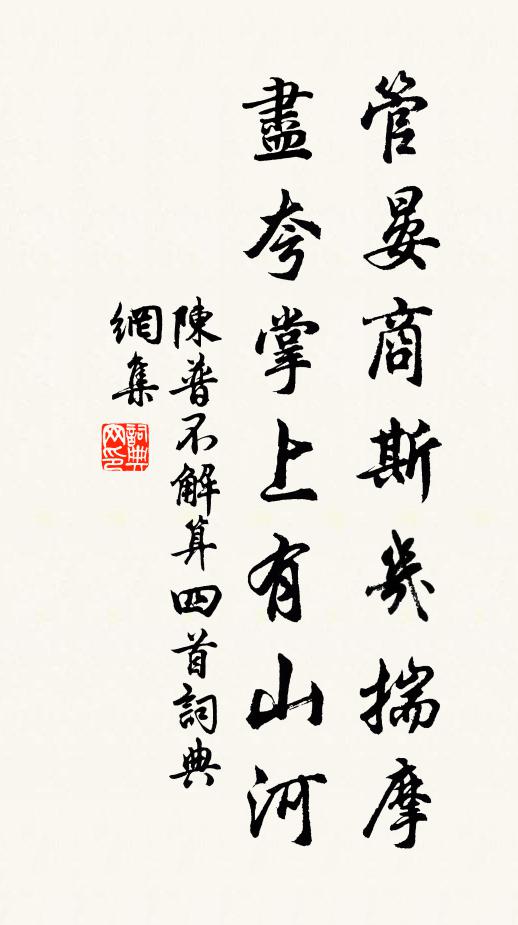 管晏商斯幾揣摩
盡夸掌上有山河
陳普不解算四首詞典
網集
詞典
网印